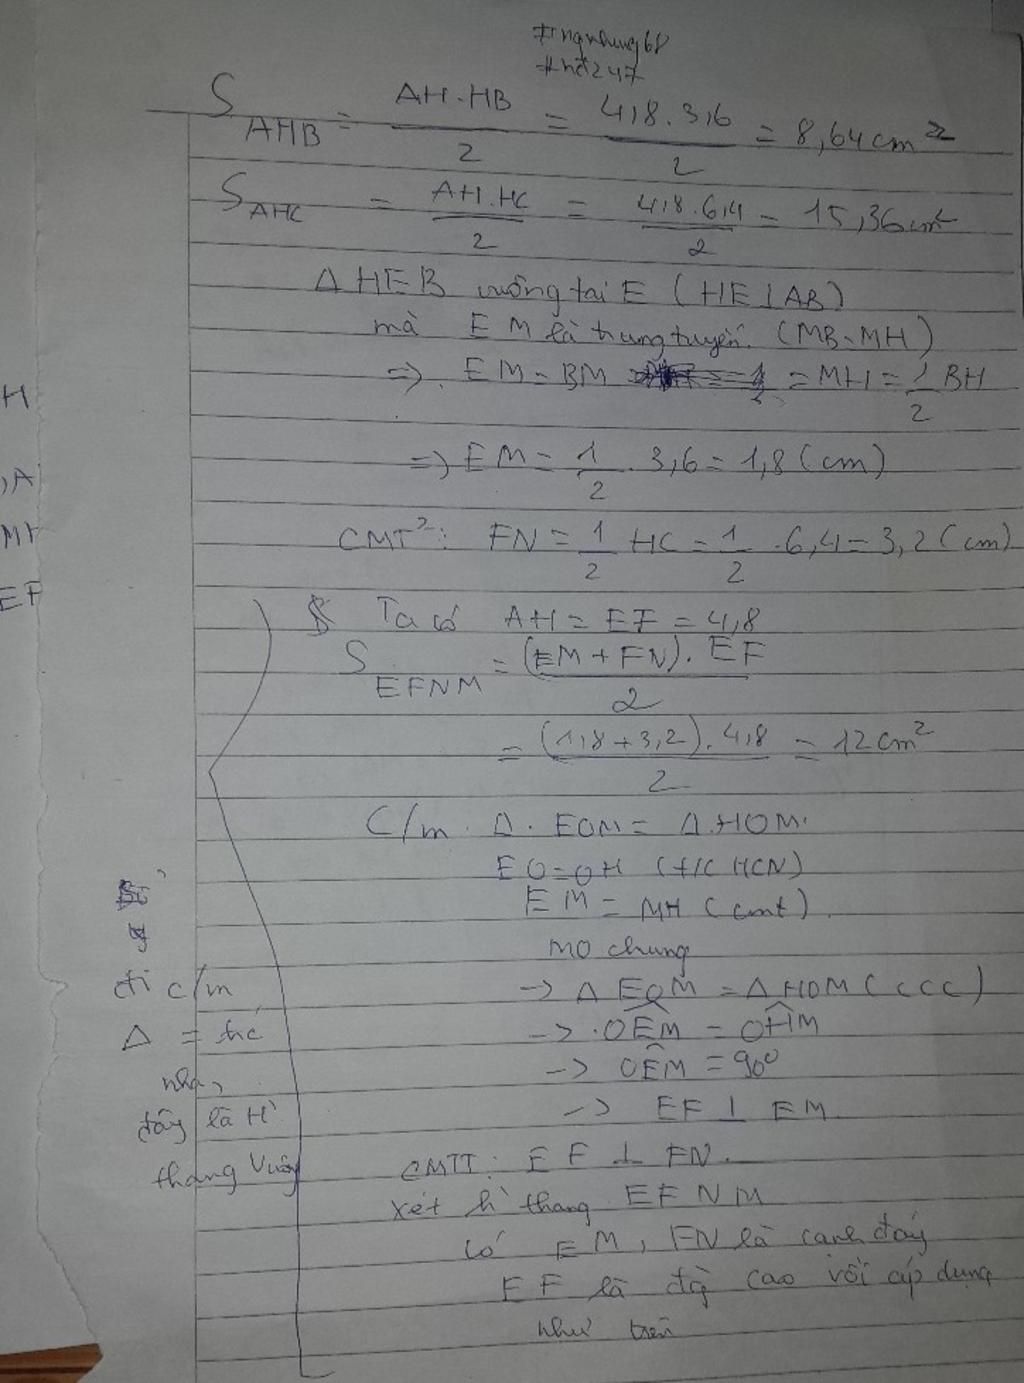 #ngnhung68
#hđ247
S AHB = AH.HB / 2 = 4,8.3,6 / 2 = 8,64 cm²
S AHC = AH.HC / 2 = 4,8.6,4 / 2 = 15,36 cm²
Δ HEB vuông tại E (HE⊥AB)
mà EM là trung tuyến (MB=MH)
=> EM = BM = MH = 1/2 BH
=> EM = 1/2 . 3,6 = 1,8 (cm)
CMT²: FN = 1/2 HC = 1/2 . 6,4 = 3,2 (cm)
Ta có AH = EF = 4,8
S EFNM = (EM + FN). EF / 2
= (1,8+3,2).4,8 / 2 = 12 cm²
C/m Δ. EOM = Δ.HOM.
EO=OH (t/c HCN)
EM = MH (cmt).
MO chung
-> Δ EOM = Δ HOM (ccc)
-> OÊM = OĤM
-> OÊM = 90°
-> EF ⊥ EM
CMTT: EF ⊥ FN.
xét h` thang EFNM
có EM, FN là cạnh đáy
EF là đg` cao rồi áp dụng
như trên
H
,A
MH
EF
đi c/m
Δ =
nha,
đây là H`
thang vuông